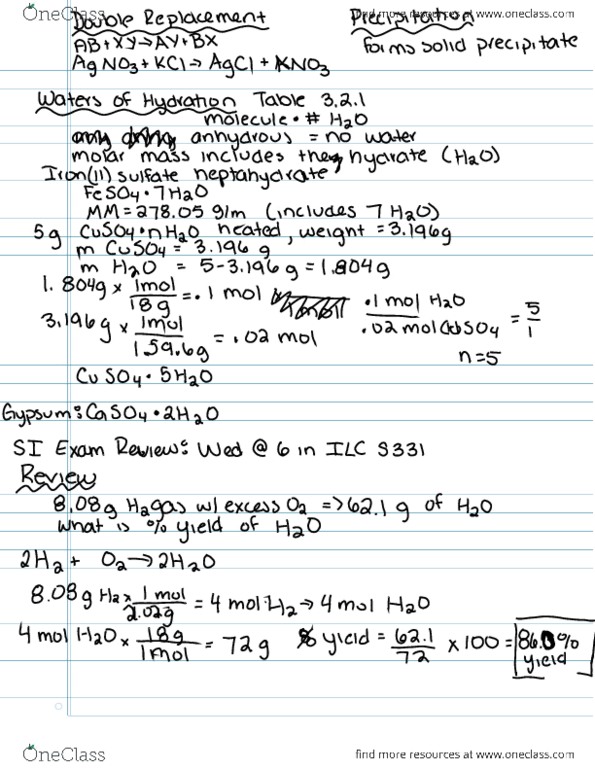 OneClass
find more resources at www.oneclass.com
Double Replacement
Precipitation
AB + XY → AY + BX
forms solid precipitate
AgNO3 + KCl → AgCl + KNO3
Waters of Hydration Table 3.2.1
molecule • # H2O
anhydrous = no water
molar mass includes the hydrate (H2O)
Iron(II) sulfate heptahydrate
FeSO4 • 7H2O
MM = 278.05 g/m (includes 7 H2O)
5g CuSO4 • nH2O heated, weight = 3.196g
m CuSO4 = 3.196 g
m H2O = 5 - 3.196 g = 1.804g
1.804g × 1mol / 18g = .1 mol
.1 mol H2O / .02 mol CuSO4 = 5/1
3.196g × 1mol / 159.6g = .02 mol
n=5
CuSO4 • 5H2O
Gypsum: CaSO4 • 2H2O
SI Exam Review: Wed @ 6 in ILC S331
Review
8.08g H2 gas w/ excess O2 => 62.1 g of H2O
What is % yield of H2O
2H2 + O2 → 2H2O
8.08g H2 × 1 mol / 2.02g = 4 mol H2 → 4 mol H2O
4 mol H2O × 18g / 1mol = 72g
% yield = 62.1 / 72 × 100 = 86.0% yield
OneClass
find more resources at www.oneclass.com